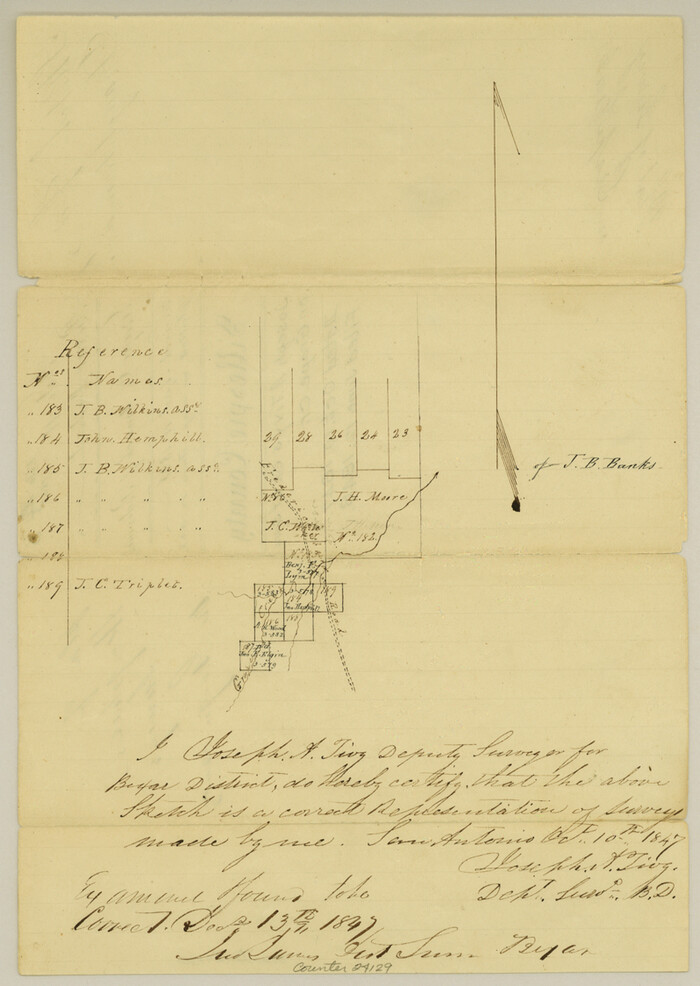 Reference
Nos. Names.
„ 183 J. B. Wilkins. asse.
„ 184 John. Hemphill.
„ 185 J. B. Wilkins. asse. of J. B. Banks.
„ 186 „ „ „ „ „
„ 187 „ „ „ „ „
„ 188
„ 189 J. C. Triplet.
29 28 26 24 23
J. H. Moore
No. 182
J. C.
I Joseph. A. Tivy Deputy Surveyor for
Bexar District, do hereby certify, that the above
Sketch is a correct Representation of Surveys
made by me. San Antonio Oct. 10th 1847
Joseph. A. Tivy.
Dept. Survr. B.D.
Examined & found to be
Correct. Decr 13th 1847
Jno James Dist Surv Bexar
Counter 24129